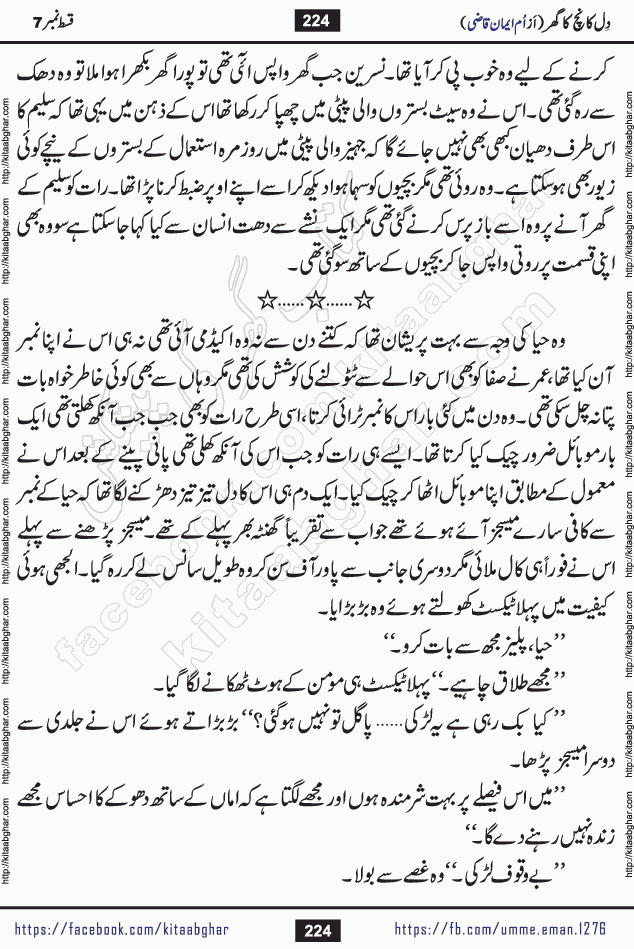 قسط نمبر 7
224
دِل کانچ کا گھر (از اُم ایمان قاضی)
کرنے کے لیے وہ خوب پی کر آیا تھا۔ نسرین جب گھر واپس آئی تھی تو پورا گھر بکھرا ہوا ملا تو وہ دھک
سے رہ گئی تھی۔ اس نے وہ سیٹ بستروں والی پیٹی میں چھپا کر رکھا تھا اس کے ذہن میں یہی تھا کہ سلیم کا
اس طرف دھیان کبھی بھی نہیں جائے گا کہ جہیز والی پیٹی میں روزمرہ استعمال کے بستروں کے نیچے کوئی
زیور بھی ہو سکتا ہے۔ وہ روئی تھی مگر بچیوں کو سہما ہوا دیکھ کر اسے اپنے اوپر ضبط کرنا پڑا تھا۔ رات کو سلیم کے
گھر آنے پر وہ اسے باز پرس کرنے گئی تھی مگر ایک نشے سے دھت انسان سے کیا کہا جا سکتا ہے سو وہ بھی
اپنی قسمت پر روتی واپس جا کر بچیوں کے ساتھ سو گئی تھی۔
☆......☆......☆
وہ حیا کی وجہ سے بہت پریشان تھا کہ کتنے دن سے نہ وہ اکیڈمی آئی تھی نہ ہی اس نے اپنا نمبر
آن کیا تھا، عمر نے صفا کو بھی اس حوالے سے ٹٹولنے کی کوشش کی تھی مگر وہاں سے بھی کوئی خاطر خواہ بات
پتا نہ چل سکی تھی۔ وہ دن میں کئی بار اس کا نمبر ٹرائی کرتا، اسی طرح رات کو بھی جب جب آنکھ کھلتی تھی ایک
بار موبائل ضرور چیک کیا کرتا تھا۔ ایسے ہی رات کو جب اس کی آنکھ کھلی تھی پانی پینے کے بعد اس نے
معمول کے مطابق اپنا موبائل اٹھا کر چیک کیا۔ ایک دم ہی اس کا دل تیز تیز دھڑکنے لگا تھا کہ حیا کے نمبر
سے کافی سارے میسجز آئے ہوئے تھے جو اب سے تقریباً گھنٹہ بھر پہلے کے تھے۔ میسجز پڑھنے سے پہلے
اس نے فوراً ہی کال ملائی مگر دوسری جانب سے پاور آف سن کر وہ طویل سانس لے کر رہ گیا۔ الجھی ہوئی
کیفیت میں پہلا ٹیکسٹ کھولتے ہوئے وہ بڑبڑایا۔
’’حیا، پلیز مجھ سے بات کرو۔‘‘
’’مجھے طلاق چاہیے۔‘‘ پہلا ٹیکسٹ ہی مومن کے ہوٹ ٹھکانے لگا گیا۔
’’کیا بک رہی ہے یہ لڑکی...... پاگل تو نہیں ہوگئی؟‘‘ بڑبڑاتے ہوئے اس نے جلدی سے
دوسرا میسجز پڑھا۔
’’میں اس فیصلے پر بہت شرمندہ ہوں اور مجھے لگتا ہے کہ اماں کے ساتھ دھوکے کا احساس مجھے
زندہ نہیں رہنے دے گا۔‘‘
’’بے وقوف لڑکی۔‘‘ وہ غصے سے بولا۔
https://facebook.com/kitaabghar
224
https://fb.com/umme.eman.1276
http://kitaabghar.com http://kitaabghar.com http://kitaabghar.com http://kitaabghar.com http://kitaabghar.com http://kitaabghar.com http://kitaabghar.com http://kitaabghar.com
http://kitaabghar.com http://kitaabghar.com http://kitaabghar.com http://kitaabghar.com http://kitaabghar.com http://kitaabghar.com http://kitaabghar.com http://kitaabghar.com
facebook.com/kitaabghar
kitaabghar.com